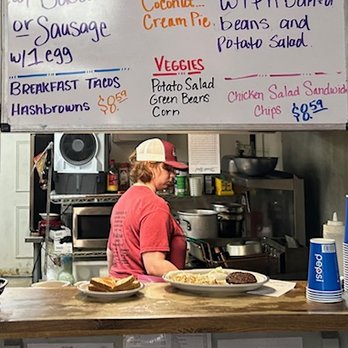 or Sausage
w/ 1 egg
BREAKFAST TACOS
Hashbrowns $8.59
Coconut...
Cream Pie
VEGGIES
Potato Salad
Green Beans
Corn
beans and
Potato Salad.
Chicken Salad Sandwich
Chips $8.59
pepsi